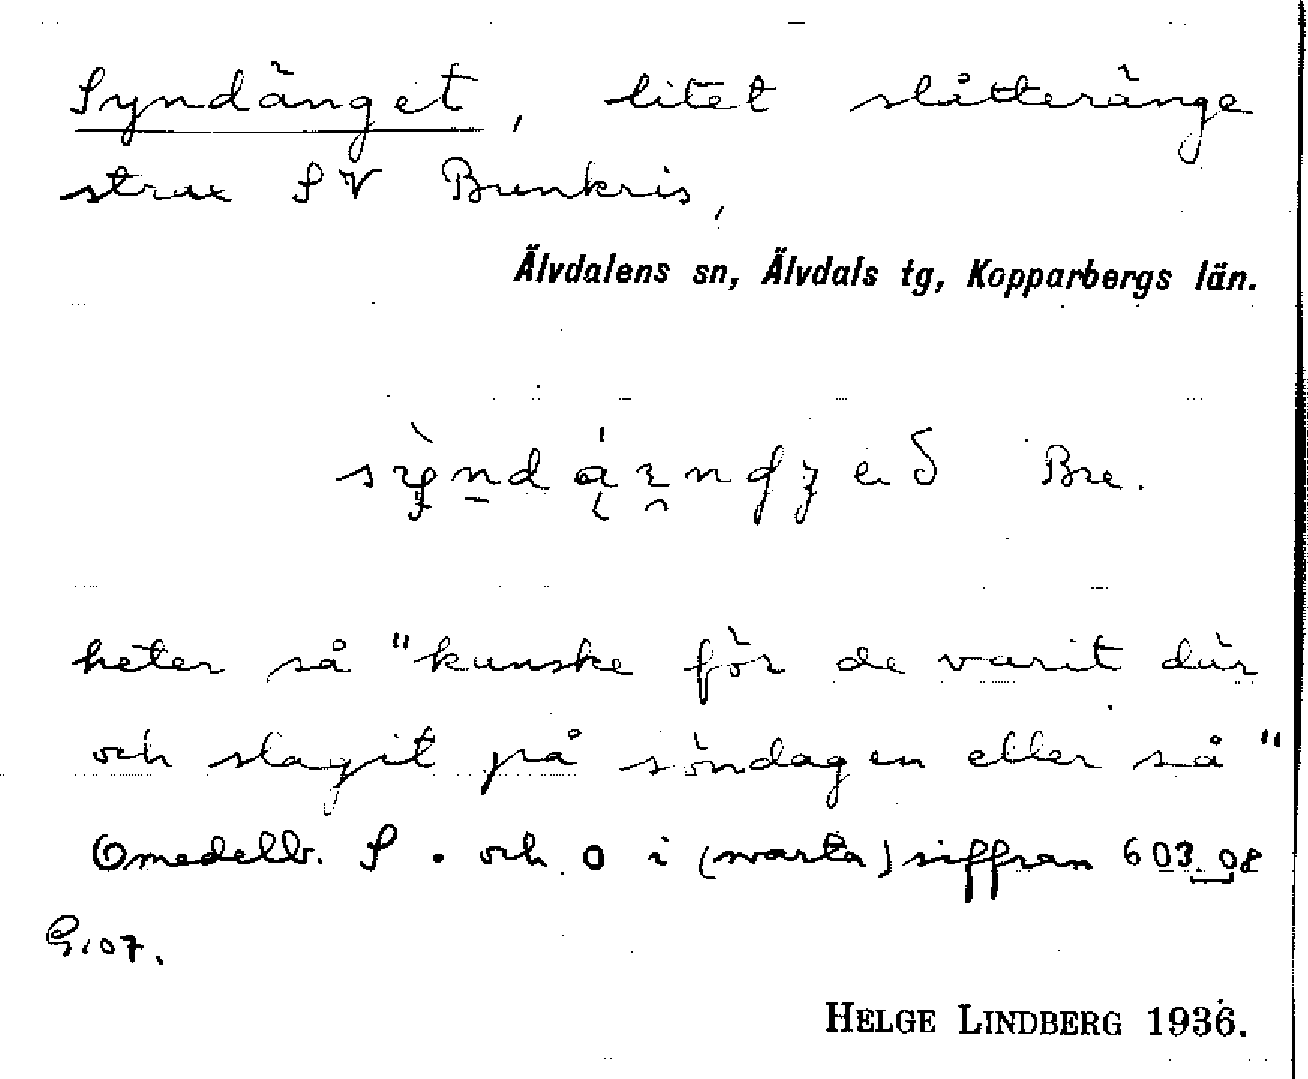 Syndänget, litet slåtteränge
strax SV Brunkris,
Älvdalens sn, Älvdals tg, Kopparbergs län.
Bre.
heter så "kanske för de varit där
och slagit på söndagen eller så"
Omedelb. S. och O i (svarta) siffran 603.08
G:07.
HELGE LINDBERG 1936.